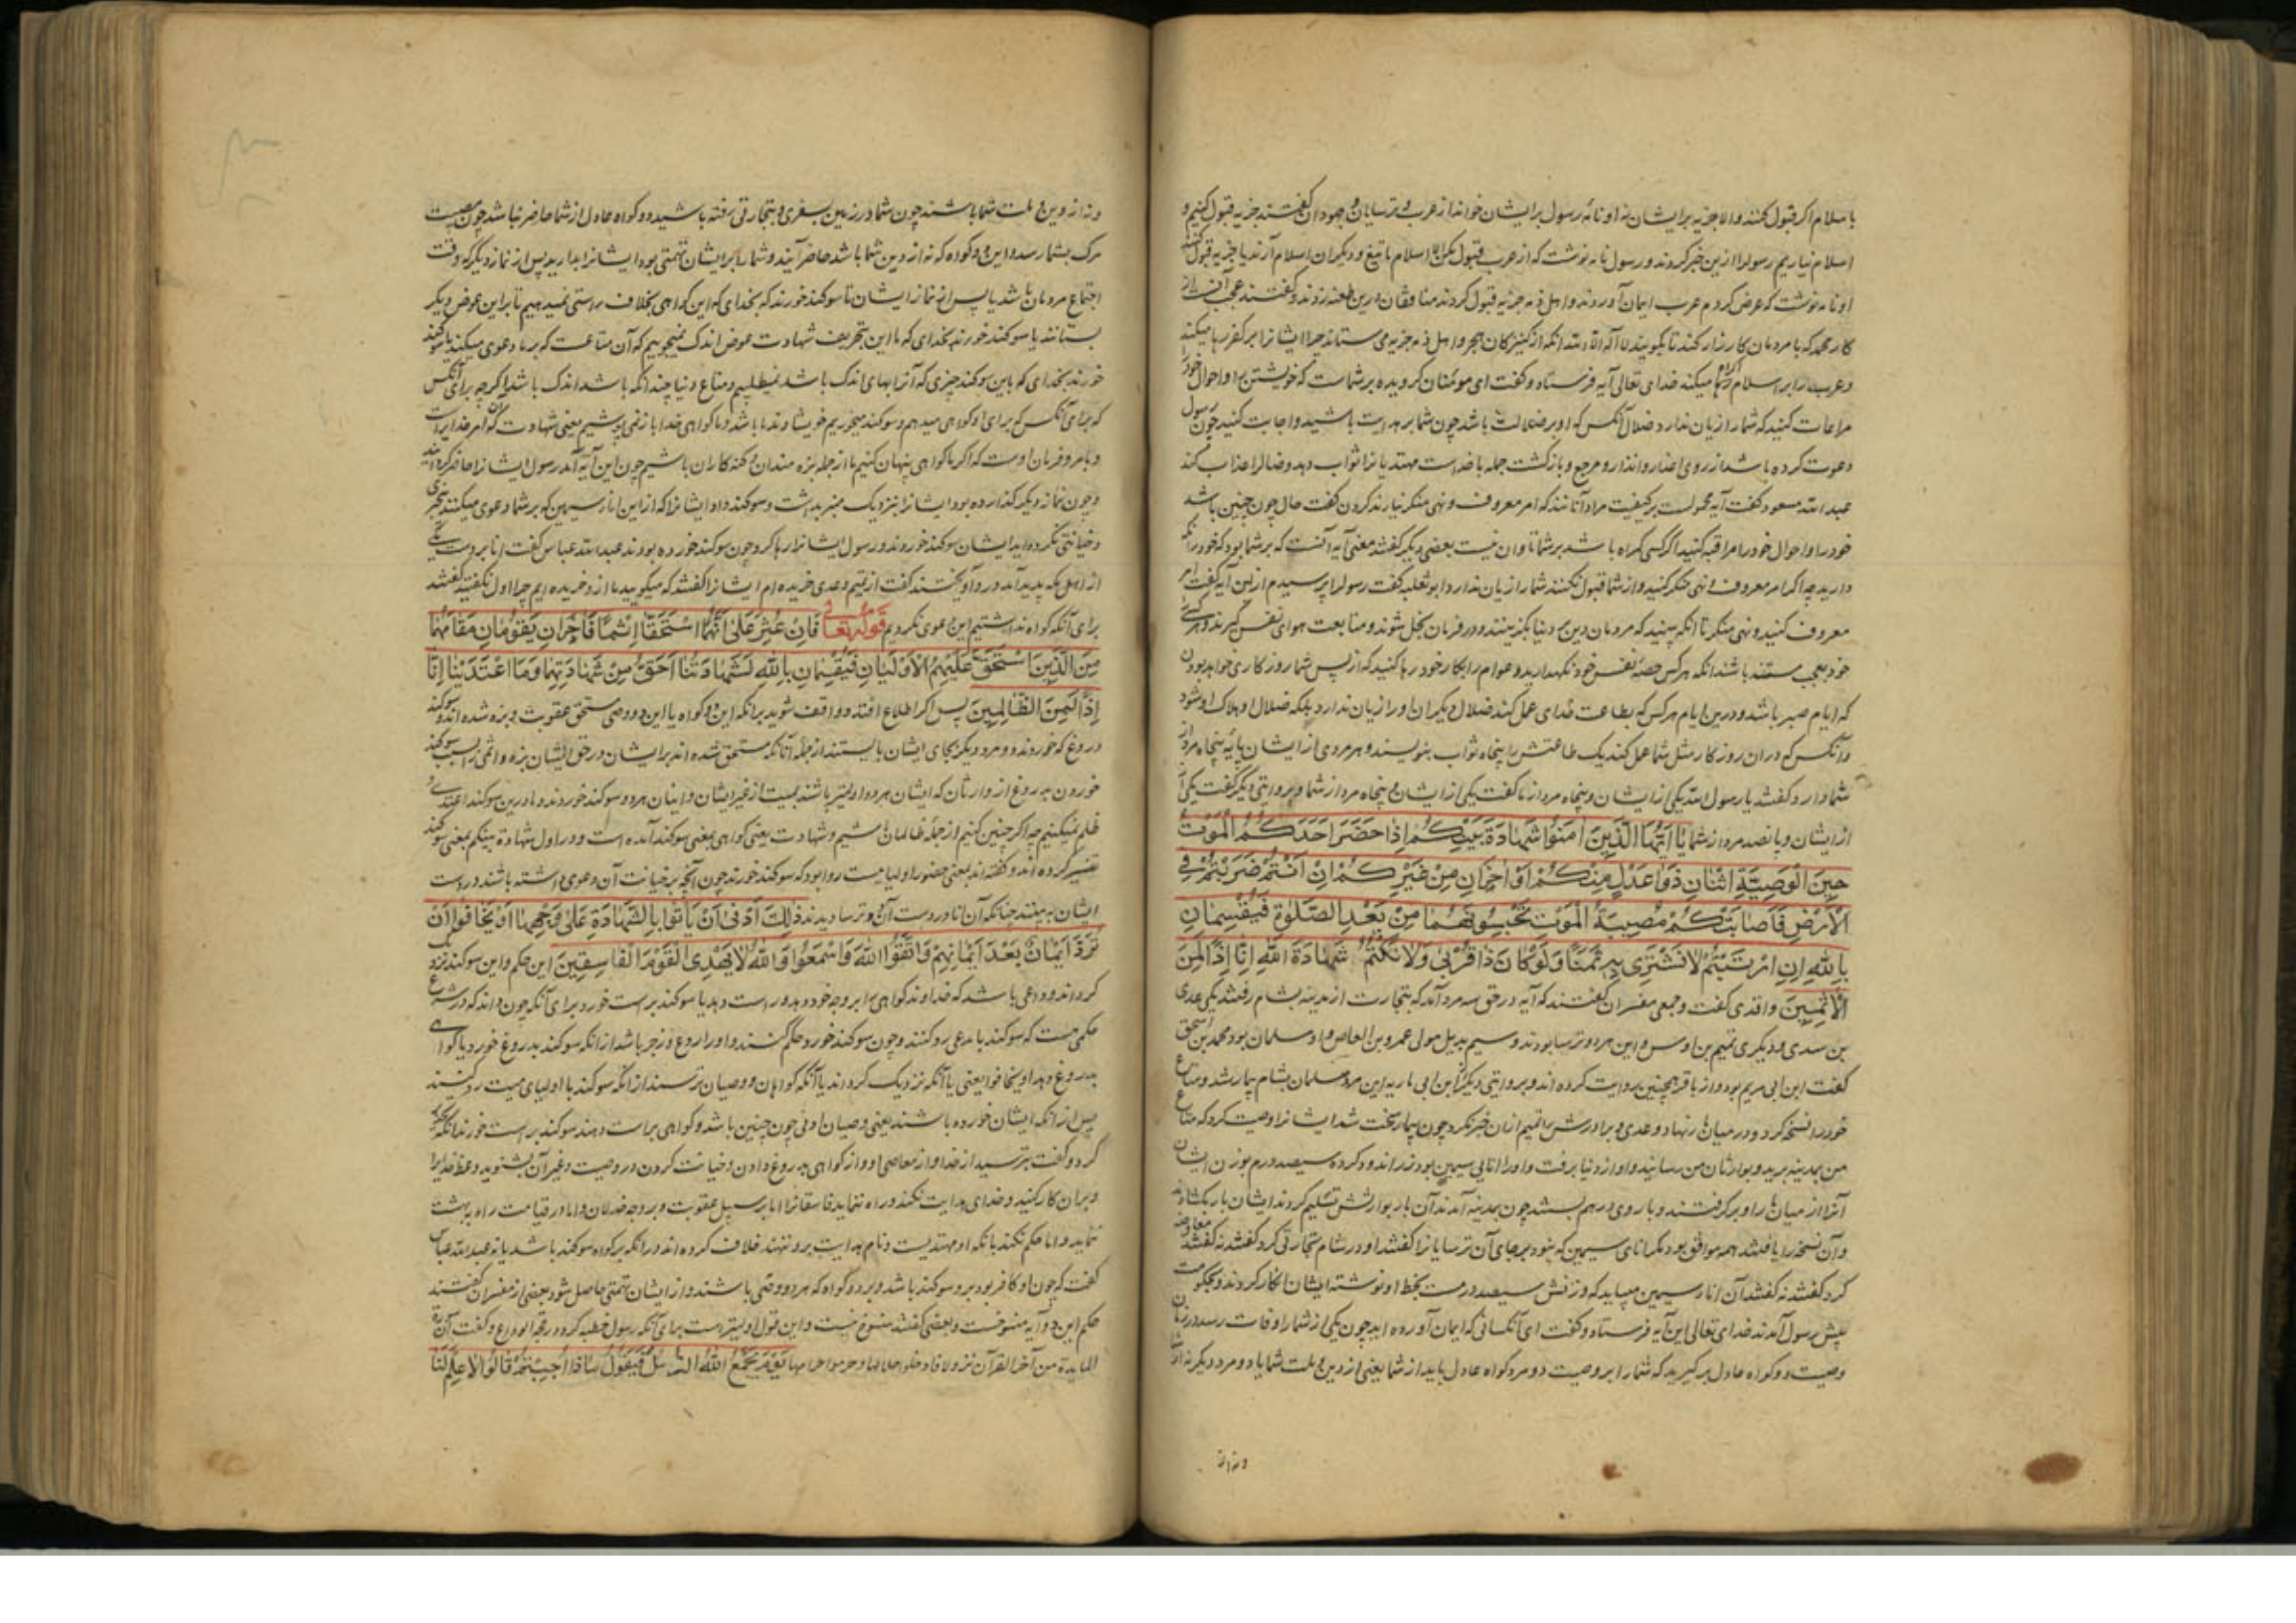 باسلام اگر قبول کنند والا جزیه بر ایشان نه او نامه رسول بر ایشان خواند از عرب و ترسایان و جهودان گفتند جزیه قبول کنیم و
اسلام نیاریم رسول را ازین خبر کردند و رسول نامه نوشت که از عرب قبول مکن الا اسلام یا تیغ و دیگران اسلام آرند یا جزیه قبول کنند
او نامه نوشت که عرض کردم عرب ایمان آوردند و اهل ذمه جزیه قبول کردند منافقان درین طعنه زدند و گفتند عجب است از
کار محمد که با مردمان کارزار کند تا بگویند لا اله الا الله آنکه از کبرکان هجر و اهل ذمه جزیه می ستاند چرا ایشانرا بر کفر رها میکند
و عرب را بر اسلام اکراه میکند خدای تعالی آیه فرستاد و گفت ای مومنان گرویده بر شماست که خویشتن را و احوال خود را
مراعات کنید که شما را زیان ندارد ضلال آنکس که او بر ضلالت باشد چون شما بر هدایت باشید و اجابت کنید چون رسول
دعوت کرده باشد از روی اعذار و انذار و مرجع و بازگشت جمله با خداست مهتدیانرا ثواب دهد و ضالرا عذاب کند
عبد الله مسعود گفت آیه محمولست بر کیفیت مراد آنانند که امر معروف و نهی منکر نیارند کردن گفت حال چون چنین باشد
خود را و احوال خود را مراقبه کنید اگر کسی گمراه باشد بر شما تاوان نیست بعضی دیگر گفتند معنی آیه آنست که بر شما بود که خود را نگه
دارید چه اگر امر معروف و نهی منکر کنید و از شما قبول نکنند شما را زیان ندارد ابو ثعلبه گفت رسول را پرسیدم ازین آیه گفت امر
معروف کنید و نهی منکر تا آنکه بینید که مردمان دین بدنیا بگزینند و در فرمان بخل شوند و متابعت هوای نفس گیرند و هر کسی
خود معجب مستبد باشد آنکه هر کس حصه نفس خود نگهدارید و عوام را بکار خود رها کنید که از پس شما روزگاری خواهد بودن
که ایام صبر باشد و درین ایام هر کس که بطاعت خدای عمل کند ضلال دیگران او را زیان ندارد بلکه ضلال او هلاک او شود
و آنکس که در آن روزگار مثل شما عمل کند یک طاعتش را پنجاه ثواب بنویسند و هر مردی از ایشان پایه پنجاه مرد از
شما دارد گفتند یا رسول الله یکی از ایشان و پنجاه مرد از ما گفت یکی از ایشان و پنجاه مرد از شما و بروایتی دیگر گفت یکی
از ایشان و پانصد مرد از شما یَا اَیُّهَا الَّذِینَ اٰمَنُوا شَهَادَةُ بَیْنِکُمْ اِذَا حَضَرَ اَحَدَکُمُ الْمَوْتُ
حِینَ الْوَصِیَّةِ اثْنَانِ ذَوَا عَدْلٍ مِنْکُمْ اَوْ اٰخَرَانِ مِنْ غَیْرِکُمْ اِنْ اَنْتُمْ ضَرَبْتُمْ فِی
الْاَرْضِ فَاَصَابَتْکُمْ مُصِیبَةُ الْمَوْتِ تَحْبِسُونَهُمَا مِنْ بَعْدِ الصَّلٰوةِ فَیُقْسِمَانِ
بِاللّٰهِ اِنِ ارْتَبْتُمْ لَا نَشْتَرِی بِهِ ثَمَنًا وَلَوْ کَانَ ذَا قُرْبٰی وَلَا نَکْتُمُ شَهَادَةَ اللّٰهِ اِنَّا اِذًا لَمِنَ
الْاٰثِمِینَ واقدی گفت و جمعی مفسران گفتند که آیه در حق سه مرد آمد که بتجارت از مدینه بشام رفتند یکی عدی
بن سدی و دیگری تمیم بن اوس و این هر دو ترسا بودند و سیم بدیل مولی عمرو بن العاص و او مسلمان بود محمد بن اسحق
گفت ابن ابی مریم بود و از باقر همچنین روایت کرده اند و بروایتی دیگر ابن ابی ماریه این مرد مسلمان بشام بیمار شد و متاع
خود را نسخه کرد و در میان بار نهاد و عدی و برادرش را تمیم از آن خبر نکرد چون بیمار سخت شد ایشانرا وصیت کرد که متاع
من بمدینه برید و بوارثان من رسانید و او از دنیا برفت و او را انائی سیمین بود زر اندود کرده سیصد درم بوزن ایشان
آنرا از میان بار او برگرفتند و بار وی در هم بستند چون بمدینه آمدند آن بار بوارثش تسلیم کردند ایشان بار بگشادند
و آن نسخه را یافتند همه موافق بود مگر انای سیمین که نبود بر جای آن ترسایانرا گفتند او در شام تجارتی کرد گفتند نه گفتند معاوضه
کرد گفتند نه گفتند آن انا سیمین میباید که وزنش سیصد درمست بخط او نوشته ایشان انکار کردند و بحکومت
پیش رسول آمدند خدای تعالی این آیه فرستاد و گفت ای آنکسانی که ایمان آورده اید چون یکی از شما را وفات رسد در زمان
وصیت دو گواه عادل برگیرید که شما را بر وصیت دو مرد گواه عادل باید از شما یعنی از دین و ملت شما یا دو مرد دیگر نه از شما
و نه از
و نه از دین و ملت شما باشند چون شما در زمین بسفری و بتجارتی رفته باشید و دو گواه عادل از شما حاضر نباشد چون مصیبت
مرگ بشما رسد و این دو گواه که نه از دین شما باشد حاضر آیند و شما را بر ایشان تهمتی بود ایشانرا بدارید پس از نماز دیگر که وقت
اجتماع مردمان باشد یا پس از نماز ایشان تا سوگند خورند که بخدای که این گواهی بخلاف راستی نمیدهیم تا بر این عوض دیگر
بستانند یا سوگند خورند بخدای که ما این بتحریف شهادت عوض اندک نمیجوییم که آن متاعست که بر ما دعوی میکنند یا سوگند
خورند بخدای که باین سوگند چیزی که آنرا بهای اندک باشد نمیطلبیم و متاع دنیا چندانکه باشد اندک باشد اگر چه برای آنکس
که برای آنکس که برای او گواهی میدهم و سوگند میخوریم خویشاوند ما باشد و ما گواهی خدا باز نمی پوشیم یعنی شهادت که امر خدا بر آنست
و بامر و فرمان اوست که اگر ما گواهی پنهان کنیم ما از جمله بزه مندان و گنه کاران باشیم چون این آیه آمد رسول ایشانرا حاضر کرد
و چون نماز دیگر گذارده بود ایشانرا بنزدیک منبر بداشت و سوگند داد ایشانرا که از این انا سیمین که بر شما دعوی میکنند خبری
و خیانتی نکرده اید ایشان سوگند خوردند و رسول ایشانرا رها کرد چون سوگند خورده بودند عبد الله عباس گفت انا بر دست یکی
از اهل مکه پدید آمد در و آویختند گفت از تمیم و عدی خریده ام ایشانرا گفتند که میگویید ما از و خریده ایم چرا اول نگفتید گفتند
برای آنکه گواه نداشتیم این دعوی نکردیم قوله تعالی فَاِنْ عُثِرَ عَلٰی اَنَّهُمَا اسْتَحَقَّا اِثْمًا فَاٰخَرَانِ یَقُومَانِ مَقَامَهُمَا
مِنَ الَّذِینَ اسْتَحَقَّ عَلَیْهِمُ الْاَوْلَیَانِ فَیُقْسِمَانِ بِاللّٰهِ لَشَهَادَتُنَا اَحَقُّ مِنْ شَهَادَتِهِمَا وَمَا اعْتَدَیْنَا اِنَّا
اِذًا لَمِنَ الظَّالِمِینَ پس اگر اطلاع افتد و واقف شوید بر آنکه این دو گواه یا این دو وصی مستحق عقوبت و بزه شده اند و سوگند
دروغ که خوردند دو مرد دیگر بجای ایشان بایستند از جمله آنانکه مستحق شده اند بر ایشان و در حق ایشان بزه و اثمی را بسبب سوگند
خوردن بدروغ از وارثان که ایشان هر دو اولیتر باشند بمیت از غیر ایشان و اینان هر دو سوگند خوردند و ما درین سوگند اعتدی و
ظلم نمیکنیم چه اگر چنین کنیم از جمله ظالمان باشیم و شهادت یعنی گواهی بمعنی سوگند آمده است و در اول شهادة بینکم بمعنی سوگند
تفسیر کرده اند و گفته اند بمعنی حضور اولیا میت روا بود که سوگند خورند چون آنچه بر خیانت آن دعوی داشته باشند در دست
ایشان به بینند چنانکه آن انا در دست آن دو ترسا دیدند ذٰلِکَ اَدْنٰی اَنْ یَأْتُوا بِالشَّهَادَةِ عَلٰی وَجْهِهَا اَوْ یَخَافُوا اَنْ
تُرَدَّ اَیْمَانٌ بَعْدَ اَیْمَانِهِمْ وَاتَّقُوا اللّٰهَ وَاسْمَعُوا وَاللّٰهُ لَا یَهْدِی الْقَوْمَ الْفَاسِقِینَ این حکم و این سوگند نزدیک
گرداند و داعی باشد که خداوند گواهی را بر وجه خود دهد و راست دهد یا سوگند براست خورد برای آنکه چون داند که در شرع
حکمی هست که سوگند با مدعی رد کنند و چون سوگند خورد حکم کنند و او را ردع و زجر باشد از آنکه سوگند بدروغ خورد یا گواهی
بدروغ دهد او یخافوا یعنی یا آنکه نزدیک گرداند یا آنکه گواهان و وصیان ترسند از آنکه سوگند با اولیای میت رد کنند
پس از آنکه ایشان خورده باشند یعنی وصیان اولی چون چنین باشد و گواهی براست دهند سوگند براست خورند آنکه
کرد و گفت بترسید از خدا و از معاصی او و از گواهی بدروغ دادن و خیانت کردن در وصیت و غیر آن بشنوید وعظ خدایرا
و بر آن کار کنید و خدای هدایت نکند و راه ننماید فاسقانرا اما بر سبیل عقوبت و بر وجه خذلان و اما در قیامت راه بهشت
ننماید و اما حکم نکند بآنکه او مهتدیست و نام هدایت برو ننهند خلاف کرده اند در آنکه بر گواه سوگند باشد یا نه عبد الله عباس
گفت که چون او کافر بود برو سوگند باشد و بر دو گواه که هر دو وصی باشند و از ایشان تهمتی حاصل شود بعضی از مفسران گفتند
حکم این دو آیه منسوخست و بعضی گفتند منسوخ نیست و این قول اولیتر است برای آنکه رسول خطبه کرد در حجة الوداع و گفت ان
المایدة من آخر القرآن نزولا فاحلوا حلالها و حرموا حرامها یَوْمَ یَجْمَعُ اللّٰهُ الرُّسُلَ فَیَقُولُ مَاذَا اُجِبْتُمْ قَالُوا لَا عِلْمَ لَنَا